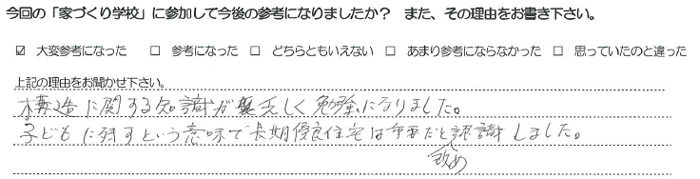 今回の「家づくり学校」に参加して今後の参考になりましたか？ また、その理由をお書き下さい。
☑ 大変参考になった □ 参考になった □ どちらともいえない □ あまり参考にならなかった □ 思っていたのと違った
上記の理由をお聞かせ下さい。
構造に関する知識が乏しく勉強になりました。
子どもに残すという意味で長期優良住宅は重要だと認識しました。
改め